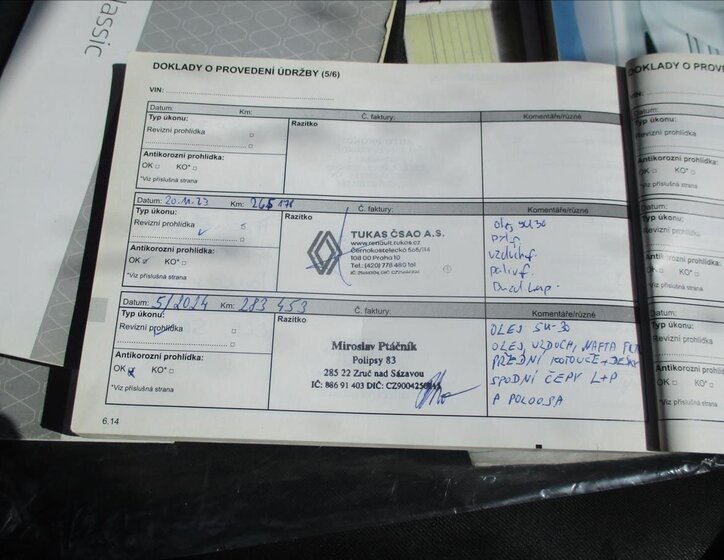 Classic
DOKLADY O PROVEDENÍ ÚDRŽBY (5/6)
VIN:
Datum: Km: Č. faktury: Komentáře/různé
Typ úkonu:
Revizní prohlídka
Razítko
Antikorozní prohlídka:
OK KO*
*Viz příslušná strana
Datum: 20.11.23 Km: 265 171 Č. faktury: Komentáře/různé
Typ úkonu:
Revizní prohlídka
Razítko
TUKAS ČSAO A.S.
www.renault.tukas.cz
108 00 Praha 10
Antikorozní prohlídka:
OK KO*
*Viz příslušná strana
olej 5W30
vzduchf.
palivf.
Datum: 5/2024 Km: 283 453 Č. faktury: Komentáře/různé
Typ úkonu:
Revizní prohlídka
Razítko
Miroslav Ptáčník
Polipsy 83
285 22 Zruč nad Sázavou
IČ: 886 91 403 DIČ:
Antikorozní prohlídka:
OK KO*
*Viz příslušná strana
OLEJ 5W-30
OLEJ, VZDUCH, NAFTA
PŘEDNÍ KOTOUČE + DESKY
SPODNÍ ČEPY L+P
A POLOOSA
6.14
DOKLADY O PROVE
VIN:
Datum:
Typ úkonu:
Revizní prohlídka
Antikorozní prohlídka:
OK KO*
*Viz příslušná strana
Datum:
Typ úkonu:
Revizní prohlídka
Antikorozní prohlídka:
OK KO*
*Viz příslušná strana
Datum:
Typ úkonu:
Revizní prohlídka
Antikorozní prohlídka:
OK KO*
*Viz příslušná strana